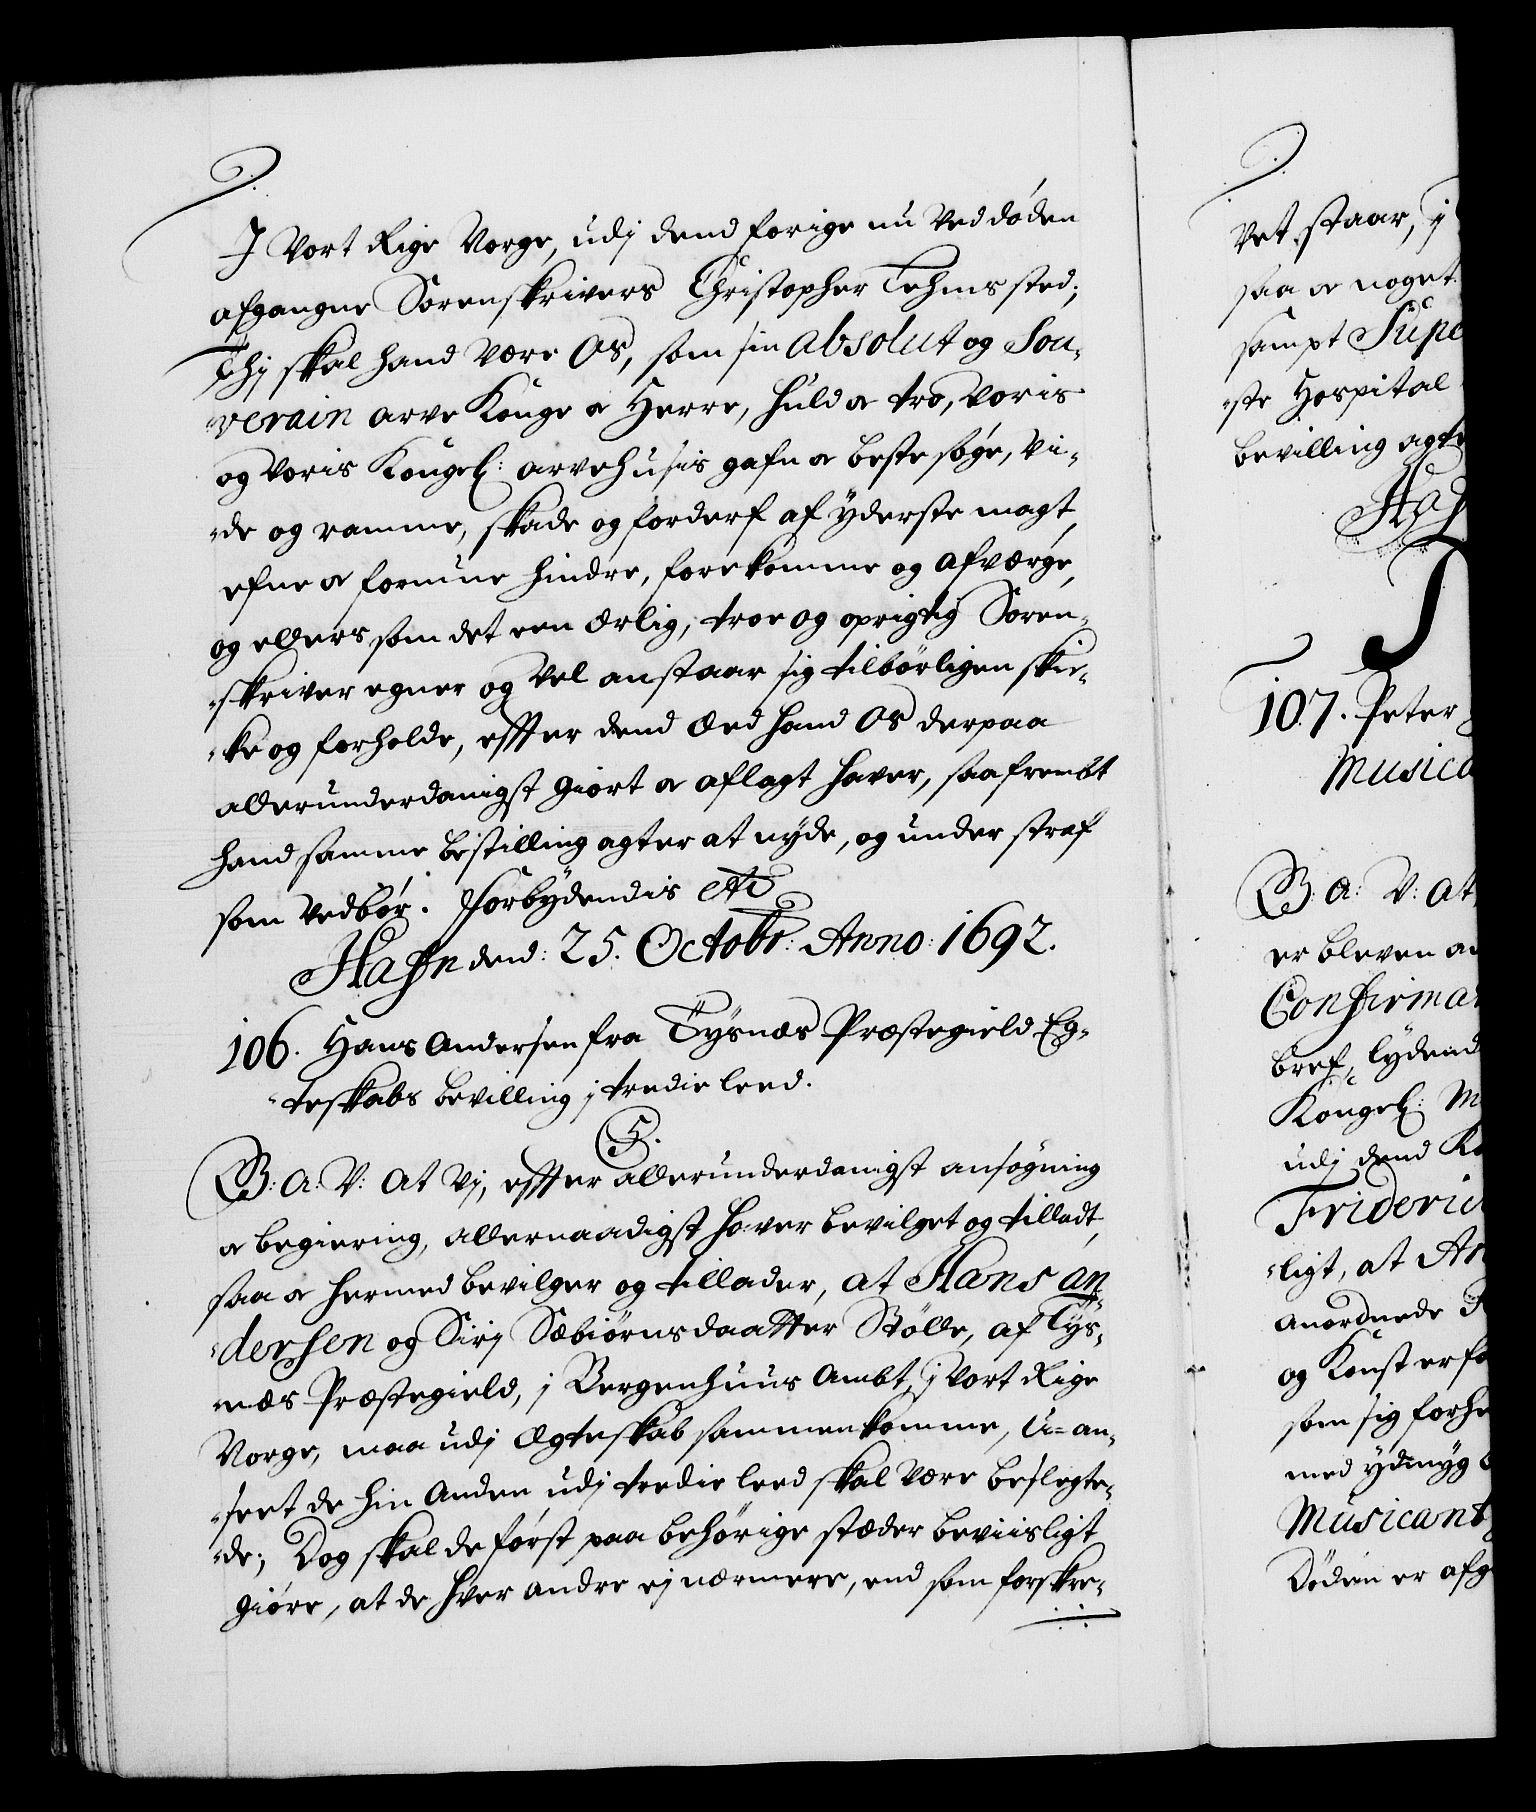 J Vort Rige Norge, udj dend forige nu ved døden
afgangne Sorenskrivers Christopher Tehms sted;
Thj skal hand være Os, som sin absolut og Sou-
verain arve Konge og Herre, huld og tro, Voris
og Voris Kongel: arvehusis gafn og beste søge, vi-
de og ramme, skade og forderf af yderste magt,
efne og formue hindre, forekomme og afværge,
og ellers som det een ærlig, troe og oprigtig Soren-
skriver egner og vel anstaar sig tilbørligen skic-
ke og forholde, effter dend Eed hand Os derpaa
allerunderdanigst giort og aflagt haver, saafrembt
hand samme bestilling agter at nyde, og under straf
som vedbør. Forbydendis etc
Hafn dend: 25. Octobr: Anno: 1692.
106. Hans Andersen fra Tysnæs Præstegield Eg-
teskabs bevilling j tredie leed.
5.
G: A: V: at Vj, effter allerunderdanigst ansøgning
og begiering, allernaadigst haver bevilget og tilladt,
saa og hermed bevilger og tillader, at Hans an
dersen og Sirj Sæbiørnsdaatter Stølle, af Tys-
næs Præstegield, j Bergenhuus Ambt, j Vort Rige
Norge, maa udj Ægteskab sammenkomme, u-an-
seet de hin anden udj tredie leed skal være beslegte-
de; Dog skal de først paa behørige stæder beviisligt
giøre, at de hver andre ej nærmere, end som forskre-
vet staar, j
saa og noget
sampt Supe
ste Hospital
bevilling agte
Haf
107. Peter
Musica
G: A: V: at
er bleven an
Confirma
bref, lydend
Kongel: M
udj dend Ko
Frideric
ligt, at An
anordnede
og Konst erfa
som sig forhe
med ydmyg
Musicant
Døden er afg